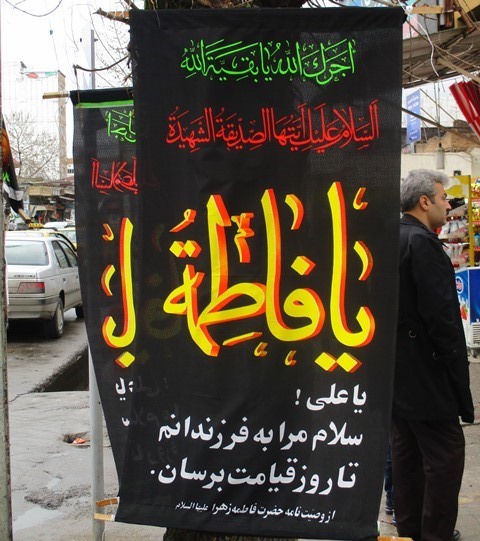 اجرک الله یا بقیة الله
السلام علیک ایتها الصدیقة الشهیدة
یا فاطمة
یا علی !
سلام مرا به فرزندانم
تا روز قیامت برسان.
از وصیت نامه حضرت فاطمه زهرا علیها السلام